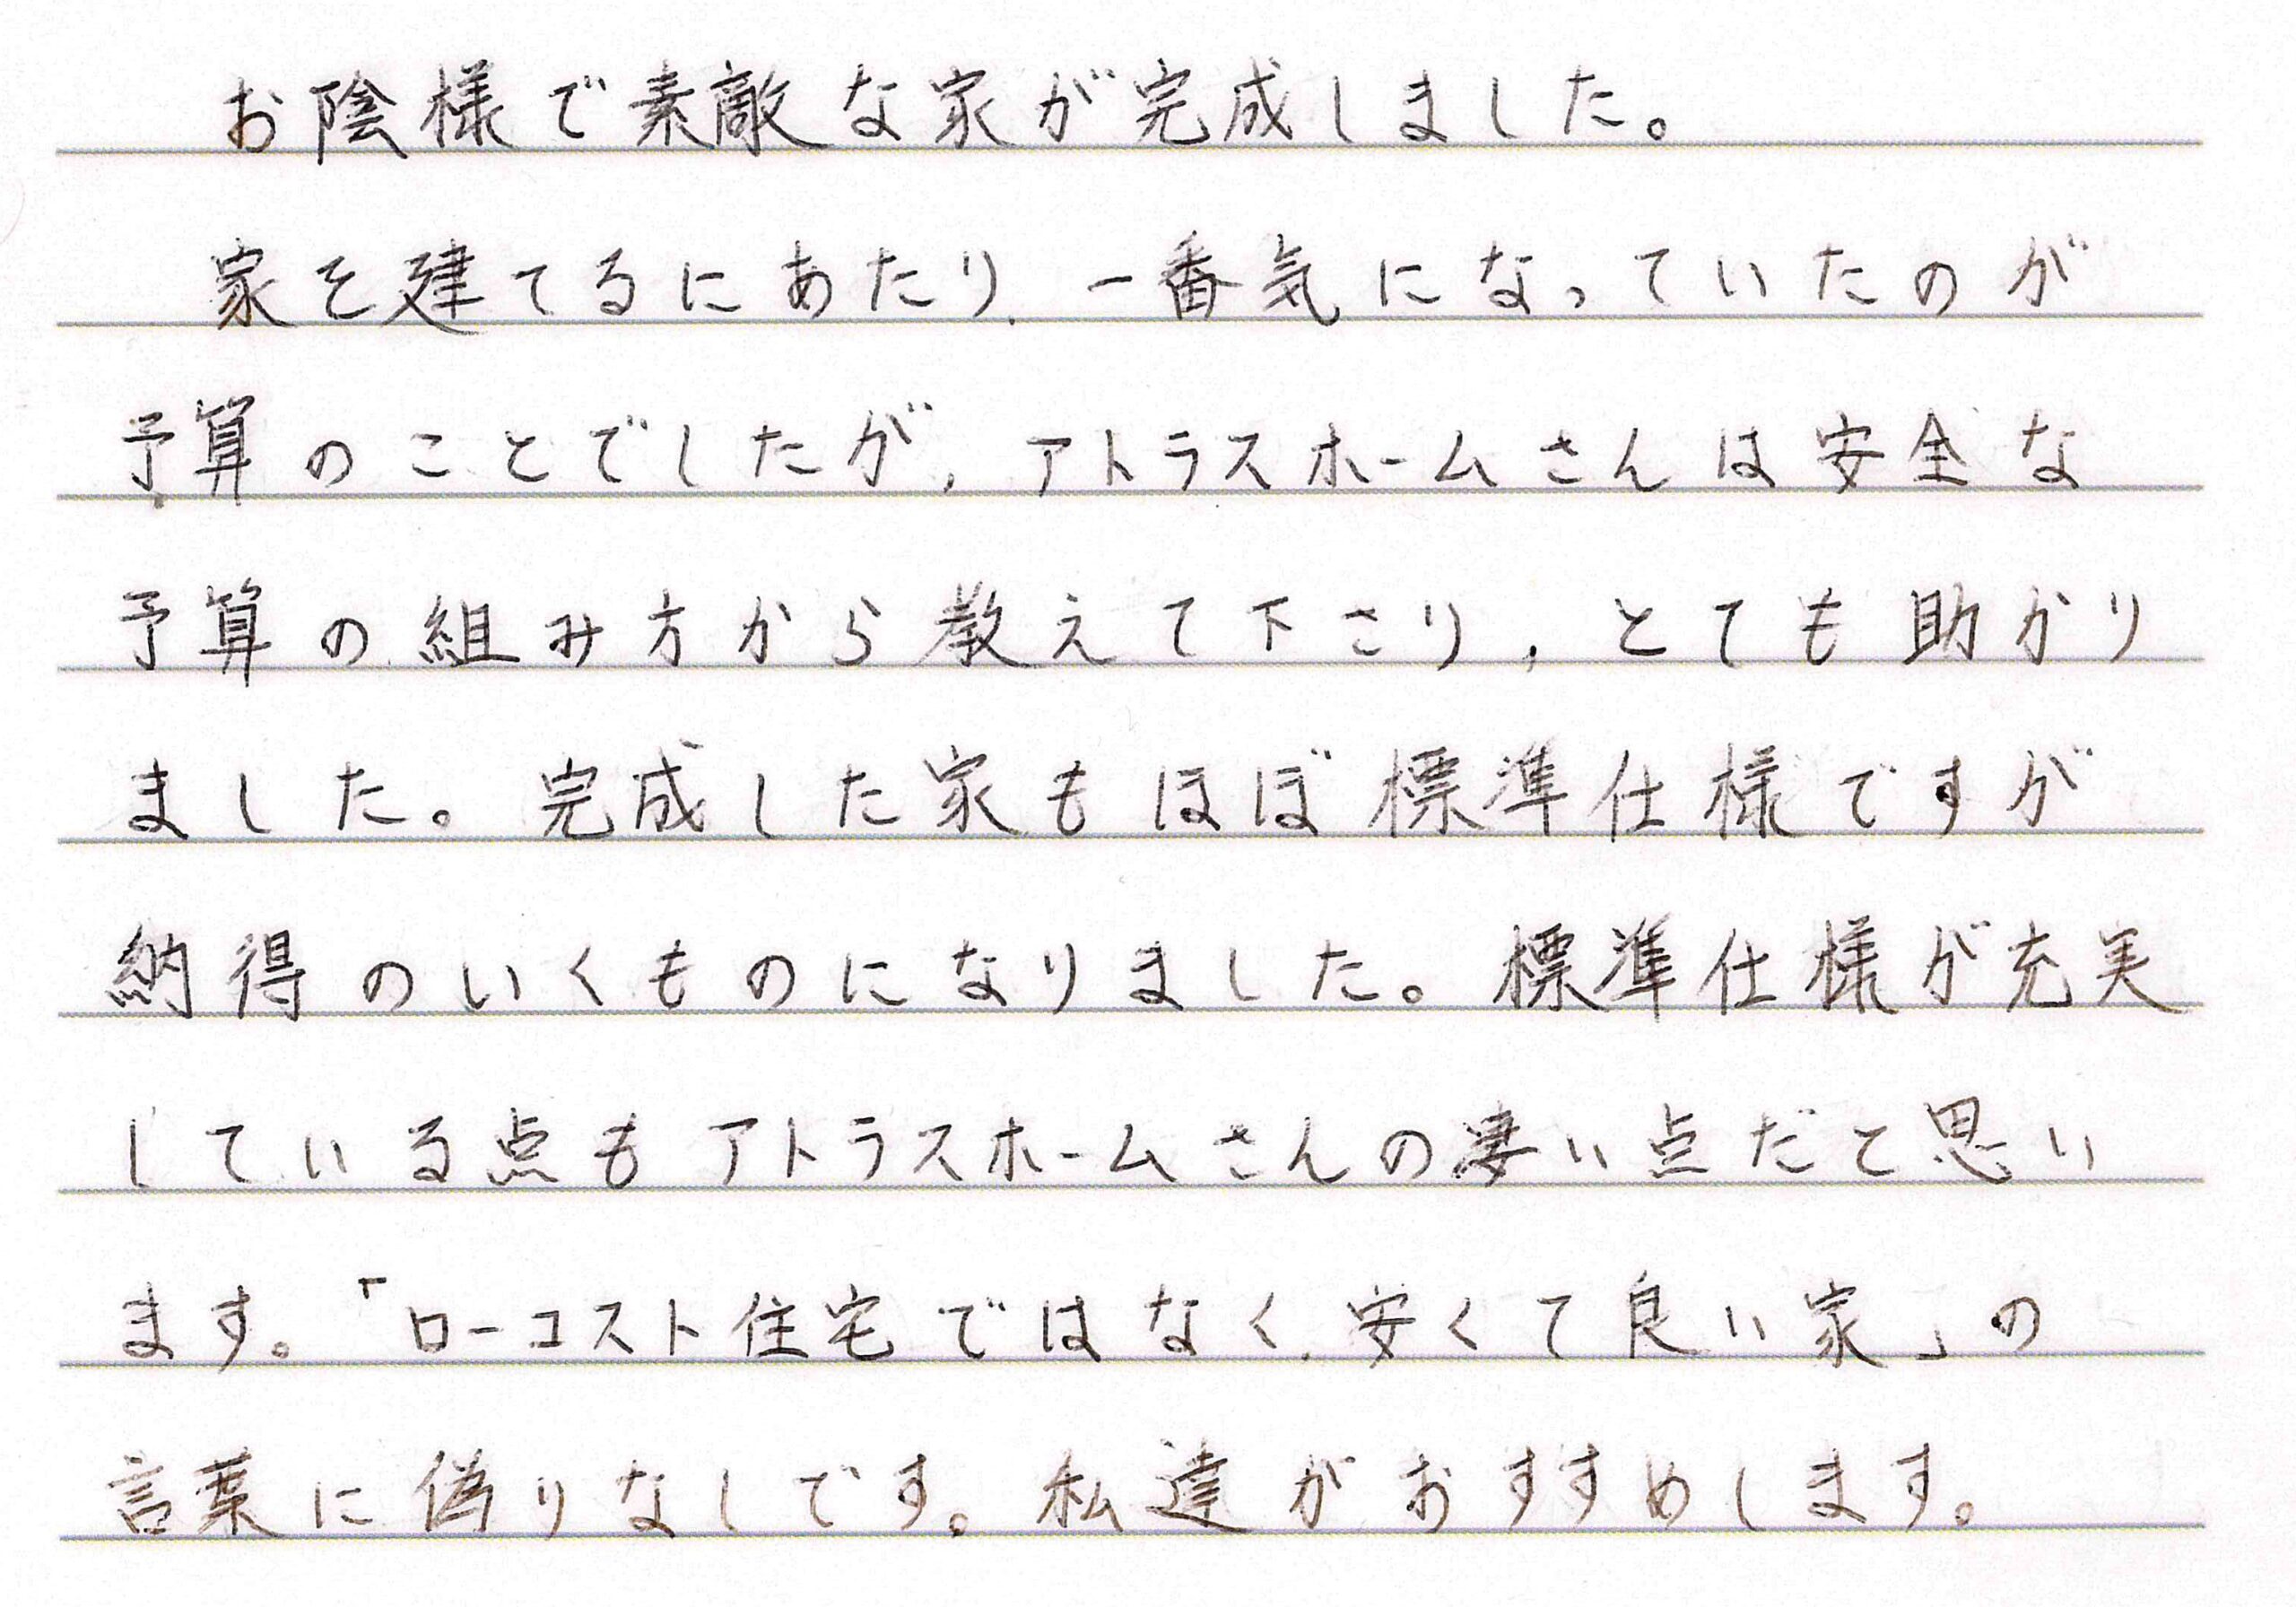 お陰様で素敵な家が完成しました。
家を建てるにあたり、一番気になっていたのが
予算のことでしたが、アトラスホームさんは安全な
予算の組み方から教えて下さり、とても助かり
ました。完成した家もほぼ標準仕様ですが
納得のいくものになりました。標準仕様が充実
している点もアトラスホームさんの凄い点だと思い
ます。「ローコスト住宅ではなく、安くて良い家」の
言葉に偽りなしです。私達がおすすめします。